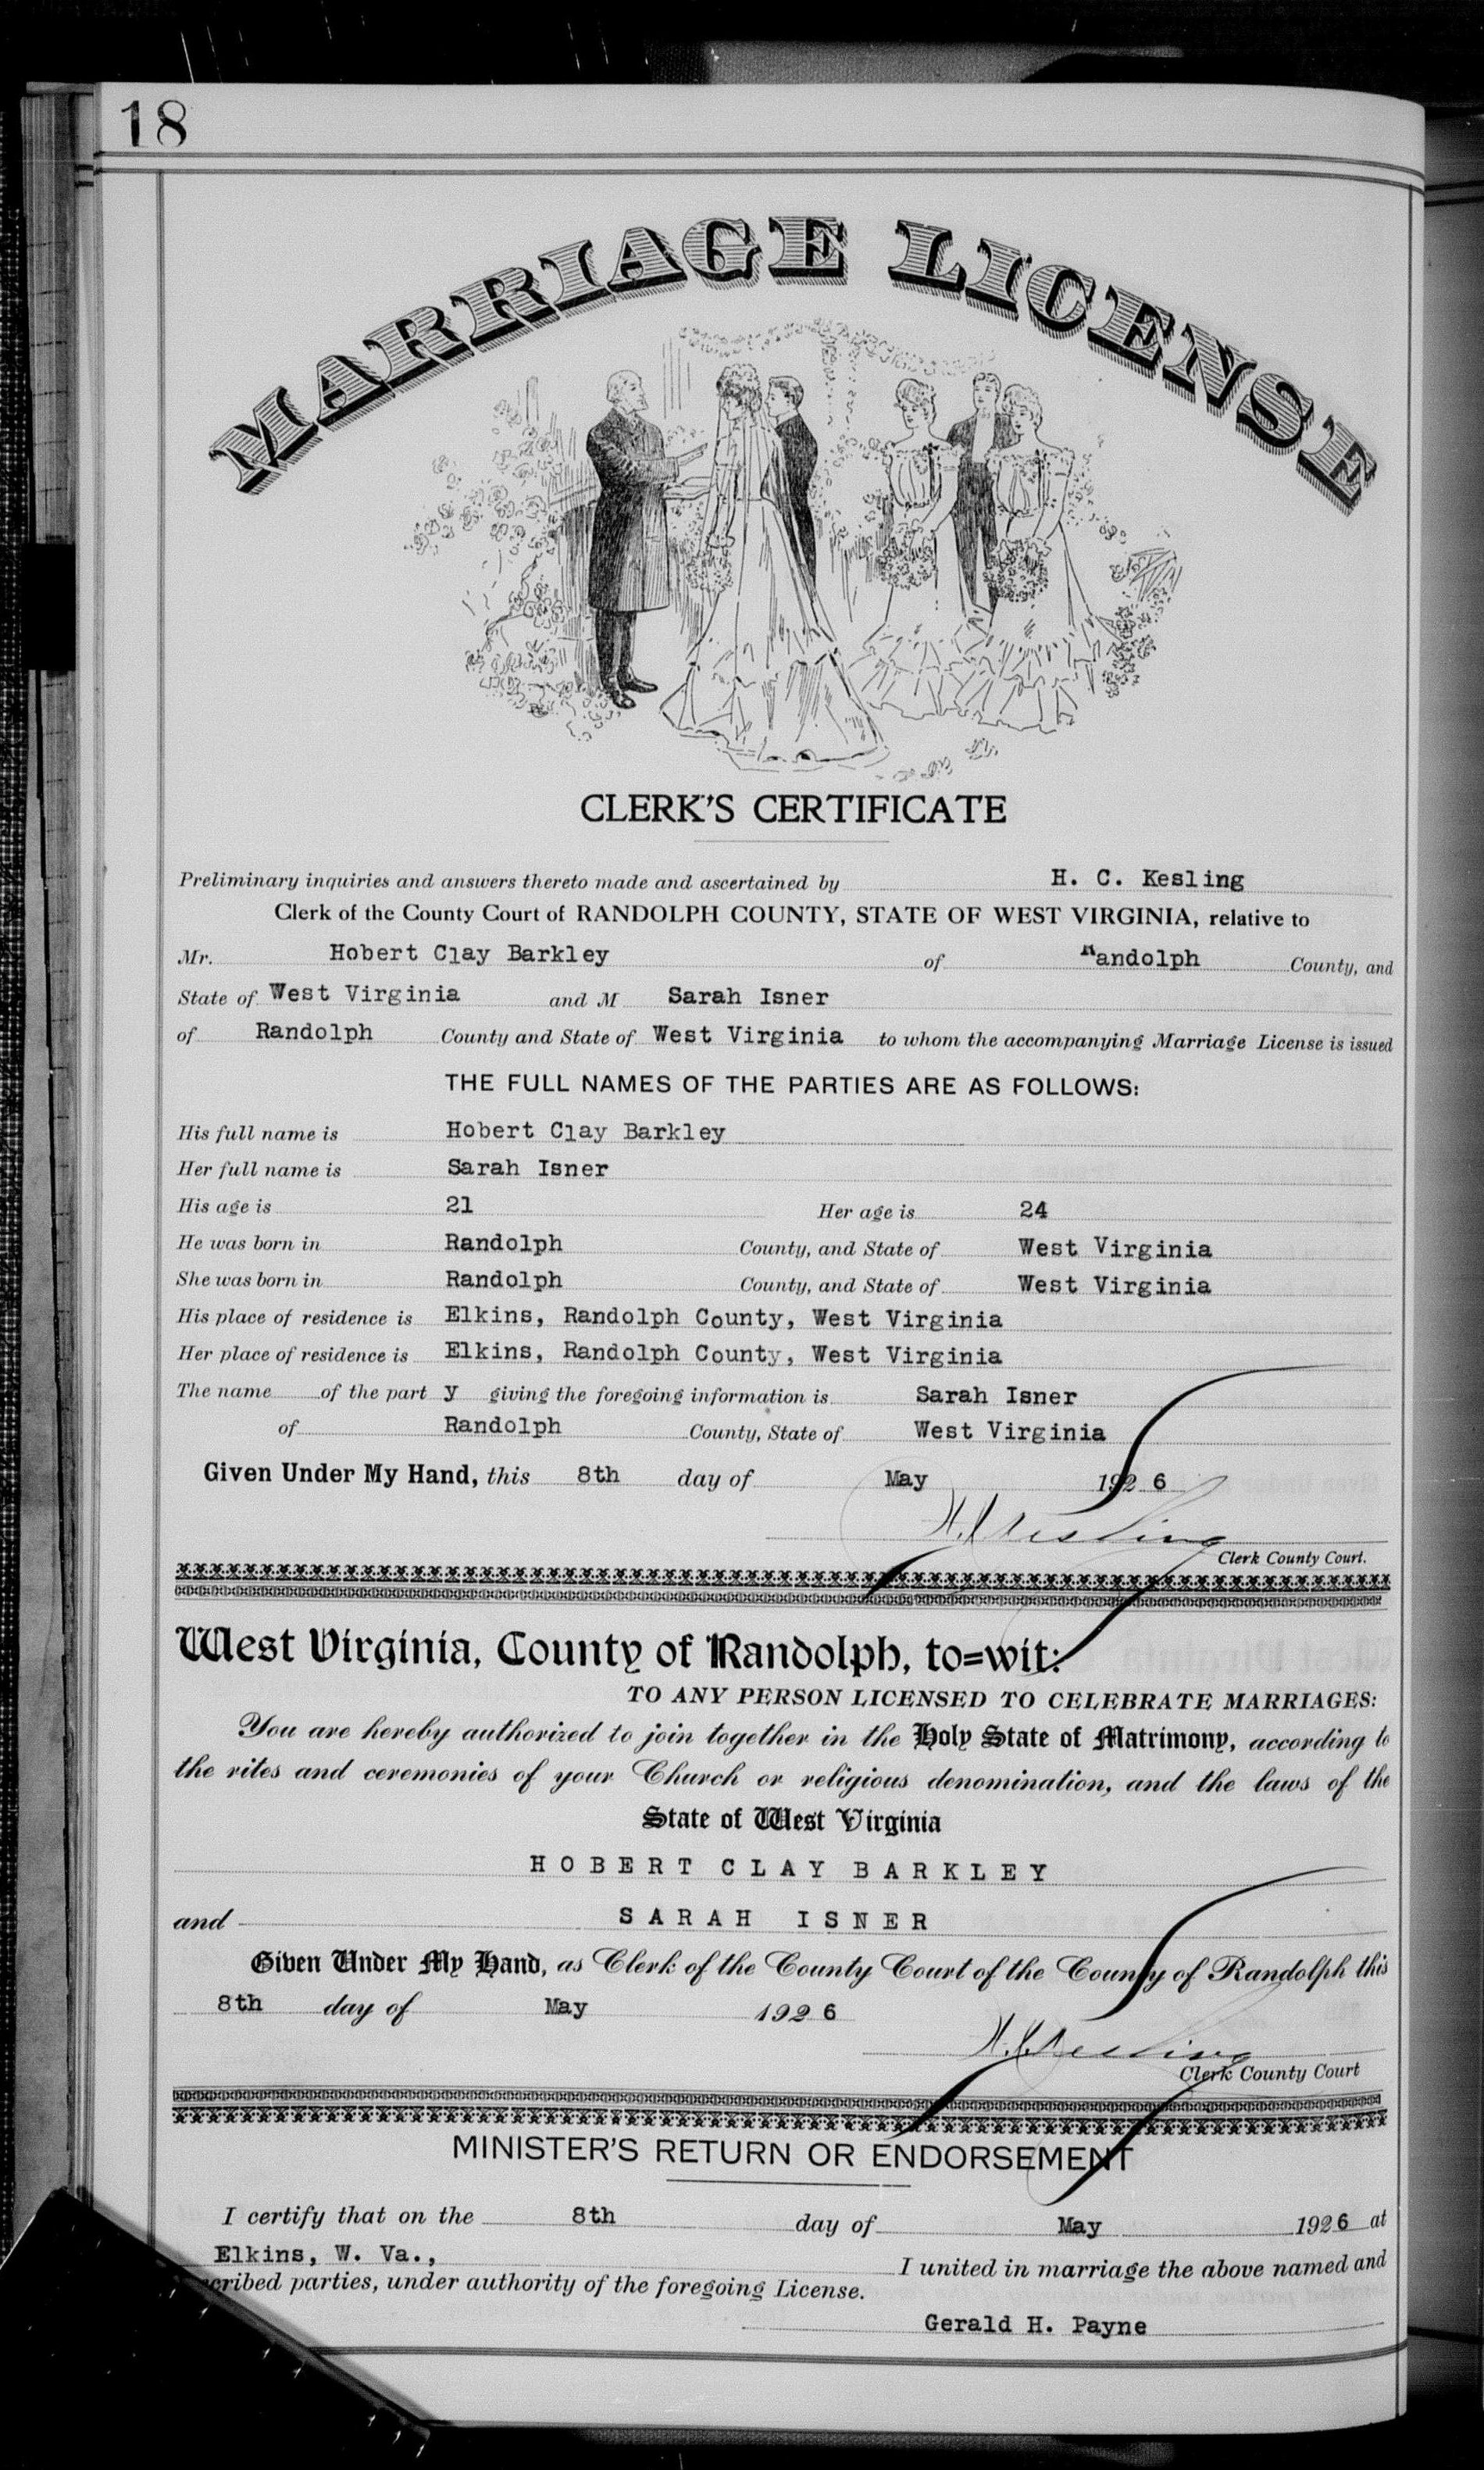 18
MARRIAGE LICENSE
CLERK'S CERTIFICATE
Preliminary inquiries and answers thereto made and ascertained by H. C. Kesling
Clerk of the County Court of RANDOLPH COUNTY, STATE OF WEST VIRGINIA, relative to
Mr. Hobert Clay Barkley of Randolph County, and
State of West Virginia and M Sarah Isner
of Randolph County and State of West Virginia to whom the accompanying Marriage License is issued
THE FULL NAMES OF THE PARTIES ARE AS FOLLOWS:
His full name is Hobert Clay Barkley
Her full name is Sarah Isner
His age is 21 Her age is 24
He was born in Randolph County, and State of West Virginia
She was born in Randolph County, and State of West Virginia
His place of residence is Elkins, Randolph County, West Virginia
Her place of residence is Elkins, Randolph County, West Virginia
The name of the part y giving the foregoing information is Sarah Isner
of Randolph County, State of West Virginia
Given Under My Hand, this 8th day of May 192 6
H. C. Kesling
Clerk County Court.
West Virginia, County of Randolph, to=wit:
TO ANY PERSON LICENSED TO CELEBRATE MARRIAGES:
You are hereby authorized to join together in the Holy State of Matrimony, according to
the rites and ceremonies of your Church or religious denomination, and the laws of the
State of West Virginia
HOBERT CLAY BARKLEY
and SARAH ISNER
Given Under My Hand, as Clerk of the County Court of the County of Randolph this
8th day of May 192 6
H. C. Kesling
Clerk County Court
MINISTER'S RETURN OR ENDORSEMENT
I certify that on the 8th day of May 1926 at
Elkins, W. Va., I united in marriage the above named and
scribed parties, under authority of the foregoing License.
Gerald H. Payne